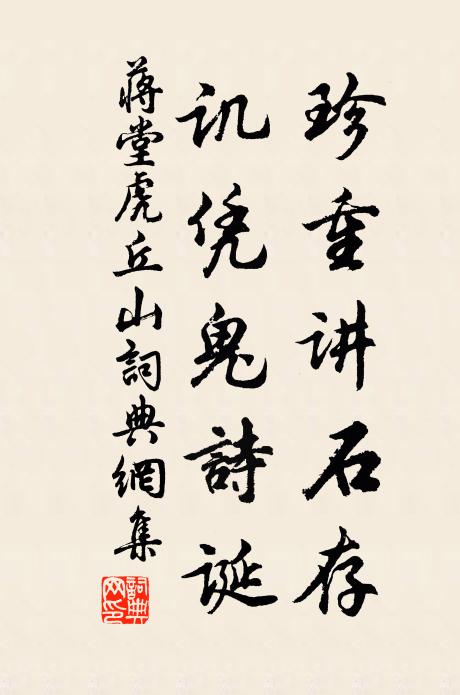 珍重讲石存
讥凭鬼詩誕
蒋堂虎丘山詞典網集
詞典网印